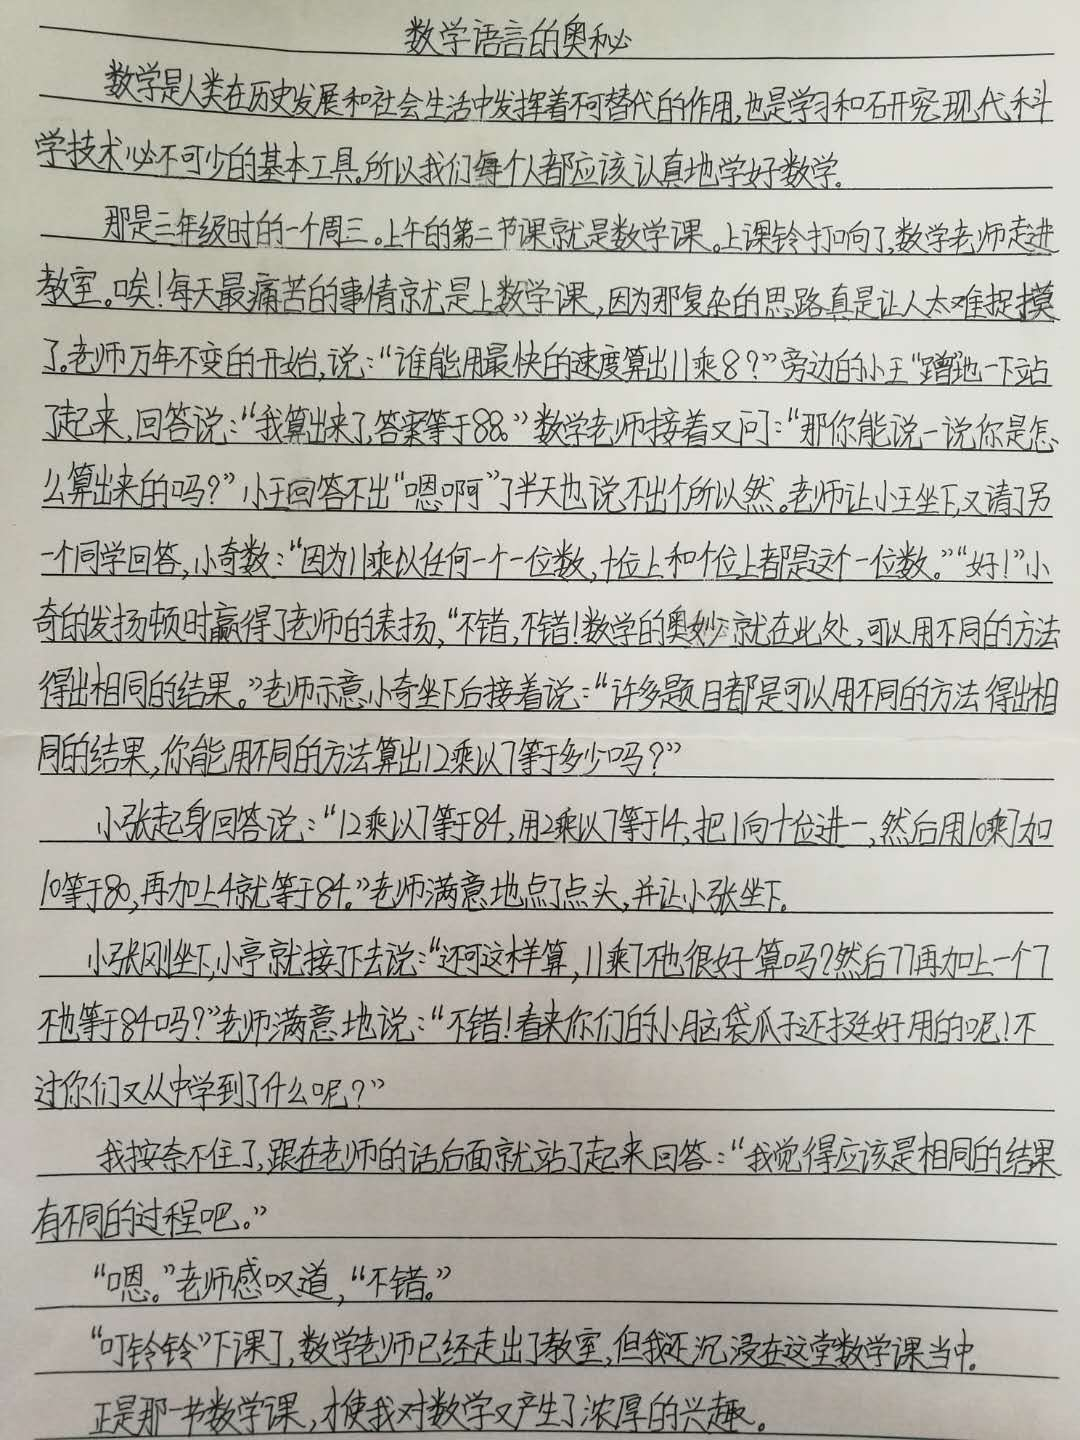 数学语言的奥秘
数学是人类在历史发展和社会生活中发挥着不可替代的作用,也是学习和研究现代科
学技术必不可少的基本工具。所以我们每个人都应该认真地学好数学。
那是三年级时的一个周三。上午的第二节课就是数学课。上课铃打响了,数学老师走进
教室。唉!每天最痛苦的事情就是上数学课,因为那复杂的思路真是让人太难捉摸
了。老师万年不变的开始,说:“谁能用最快的速度算出11乘8?”旁边的小王“蹭”地一下站
了起来,回答说:“我算出来了,答案等于88。”数学老师接着又问:“那你能说一说你是怎
么算出来的吗?”小王回答不出“嗯啊”了半天也说不出个所以然。老师让小王坐下,又请了另
一个同学回答,小奇数:“因为11乘以任何一个一位数,十位上和个位上都是这个一位数。”“好!”小
奇的发扬顿时赢得了老师的表扬,“不错,不错!数学的奥妙就在此处,可以用不同的方法
得出相同的结果。”老师示意小奇坐下后接着说:“许多题目都是可以用不同的方法得出相
同的结果,你能用不同的方法算出12乘以7等于多少吗?”
小张起身回答说:“12乘以7等于84,用2乘以7等于14,把1向十位进一,然后用10乘7加
10等于80,再加上4就等于84。”老师满意地点了点头,并让小张坐下。
小张刚坐下,小亭就接了下去说:“还可这样算,11乘7不也很好算吗?然后77再加上一个7
不也等于84吗?”老师满意地说:“不错!看来你们的小脑袋瓜子还挺好用的呢!不
过你们又从中学到了什么呢?”
我按奈不住了,跟在老师的话后面就站了起来回答:“我觉得应该是相同的结果
有不同的过程吧。”
“嗯。”老师感叹道,“不错。”
“叮铃铃”下课了,数学老师已经走出了教室,但我还沉浸在这堂数学课当中。
正是那一节数学课,才使我对数学又产生了浓厚的兴趣。